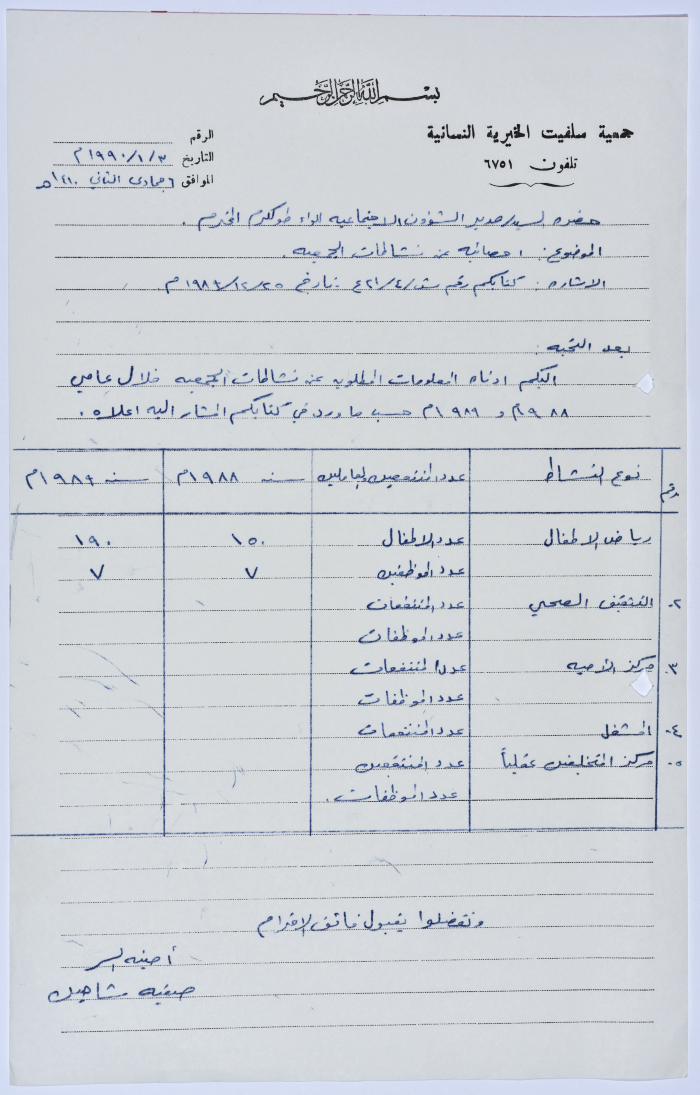 بسم الله الرحمن الرحيم
جمعية سلفيت الخيرية النسائية
تلفون ٦٧٥١
الرقم
التاريخ ٣/١/١٩٩٠م
الموافق ٦ جمادى الثاني ١٤١٠هـ
حضرة السيد/مدير الشؤون الاجتماعيه لواء طولكرم المحترم .
الموضوع: احصائية عن نشاطات الجمعيه .
الاشاره : كتابكم رقم ش/٤/٢١ع تاريخ ٢٥/١٢/١٩٨٩م
بعد التحيه :
اليكم ادناه المعلومات المطلوبه عن نشاطات الجمعيه خلال عامي
١٩٨٨م و ١٩٨٩م حسب ما ورد في كتابكم المشار اليه اعلاه .
رقم نوع النشاط عدد المنتفعين والعاملين سنة ١٩٨٨م سنة ١٩٨٩م
رياض الاطفال عدد الاطفال ١٥٠ ١٩٠
عدد الموظفين ٧ ٧
٢. التثقيف الصحي عدد المنتفعات
عدد الموظفات
٣. مركز الاميه عدد المنتفعات
عدد الموظفات
٤. المشغل عدد المنتفعات
٥. مركز المتخلفين عقلياً عدد المنتفعين
عدد الموظفات .
وتفضلوا بقبول فائق الاحترام
أمينة السر
صفيه شاهين